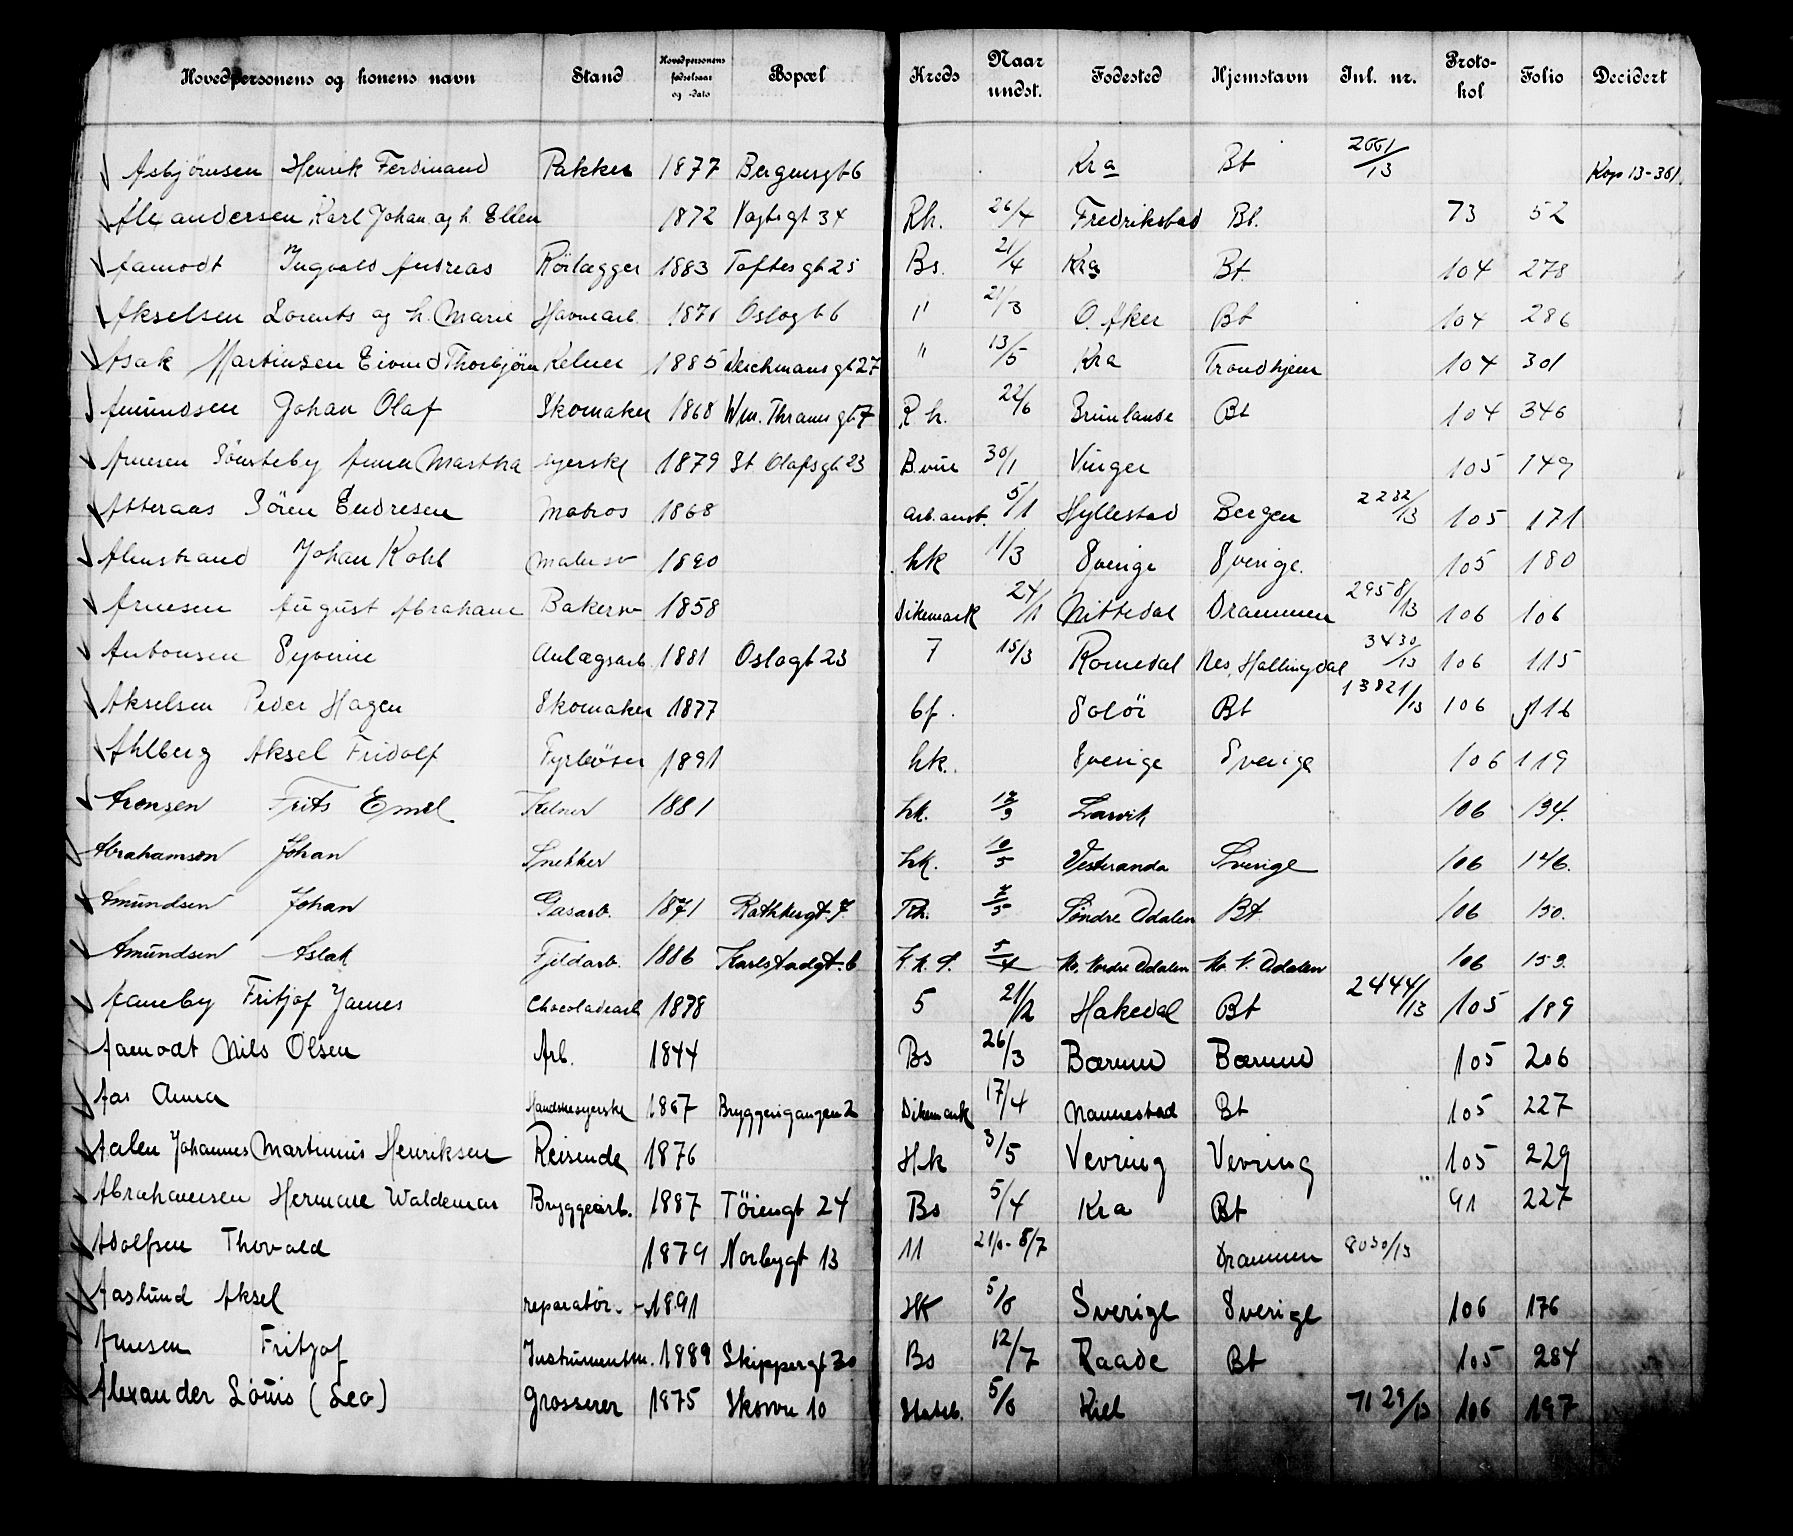 Hovedpersonens og konens navn Stand Hovedpersonens fødselsaar og -dato Bopæl Kreds Naar undst. Fødested Hjemstavn Inl. nr. Protokol Folio Decidert
Asbjørnsen Henrik Ferdinand Pakker 1877 Bergensgt 6 Kra Bt 2661/13 Kop 13-361
Alexandersen Karl Johan og h. Ellen 1872 Vogtsgt 34 Rh. 26/4 Fredriksstad Bt. 73 52
Aamodt Ingvald Andreas Rörlægger 1883 Toftesgt 25 Bs. 21/4 Kra Bt. 104 278
Akselsen Lorents og h. Marie Havnearb. 1871 Oslogt 6 " 21/3 Ö. Aker Bt 104 286
Asak Martinsen Eivind Thorbjörn Kelner 1885 Deichmansgt 27 " 13/5 Kra Trondhjem 104 301
Amundsen Johan Olaf Skomaker 1868 Wm. Thranesgt 7 Rh. 22/6 Brunlanæs Bt 104 346
Arnesen Sönsteby Anna Martha syerske 1879 St Olafsgt 23 B.vin 30/1 Vinger 105 149
Atteraas Sören Endresen Matros 1868 Arb.anst. 5/1 Hyllestad Bergen 2232/13 105 171
Almstrand Johan Kahl Malersv 1890 hk 1/3 Sverige Sverige. 105 180
Arnesen August Abraham Bakersv 1858 Dikemark 24/1 Nittedal Drammen 2958/13 106 106
Antonsen Syverine Anlægsarb. 1881 Oslogt 23 7 15/3 Romedal Nes, Hallingdal 3430/13 106 115
Akselsen Peder Hagen Skomaker 1877 bf. Solör Bt 13821/13 106 116
Ahlberg Aksel Fridolf Fyrböter 1891 hk. Sverige Sverige 106 119
Aronsen Frits Emil Kelner 1881 hk. 12/3 Larvik 106 134.
Abrahamson Johan Snekker hk. 10/5 Vesteranda Sverige 106 146.
Amundsen Johan Gasarb. 1871 Rathkesgt. 7 Rh. 2/5 Söndre Odalen Bt 106 150.
Amundsen Aslak Fjeldarb. 1886 Karlstadgt. 6 5/4 No. Nordre Odalen No. N. Odalen 106 153.
Aaneby Fritjof James Chocoladearb 1878 5 21/2 Hakedal Bt 2444/13 105 189
Aamodt Nils Olsen Arb. 1844 Bs 26/3 Bærum Bærum 105 206
Aas Anna Handskesyerske 1867 Bryggerigangen 2 Dikemark 17/4 Nannestad Bt 105 227
Aalen Johannes Martinius Henriksen Reisende 1876 Hk 3/5 Vevring Vevring 105 229
Abrahamsen Herman Waldemar Bryggearb. 1887 Töiengt 24 Bs 5/4 Kra Bt 91 227
Adolfsen Thorvald 1879 Norbygt 13 11 21/6-8/7 Drammen 8030/13
Aaslund Aksel reparatör. 1891 HK 5/6 Sverige Sverige 106 176
Arnesen Fritjof Instrumentm. 1889 Skippergt 30 Bs 12/7 Raade Bt 105 284
Alexander Louis (Leo) Grosserer 1875 Skovvn 10 Statsb. 5/6 Kiel 7129/13 106 197